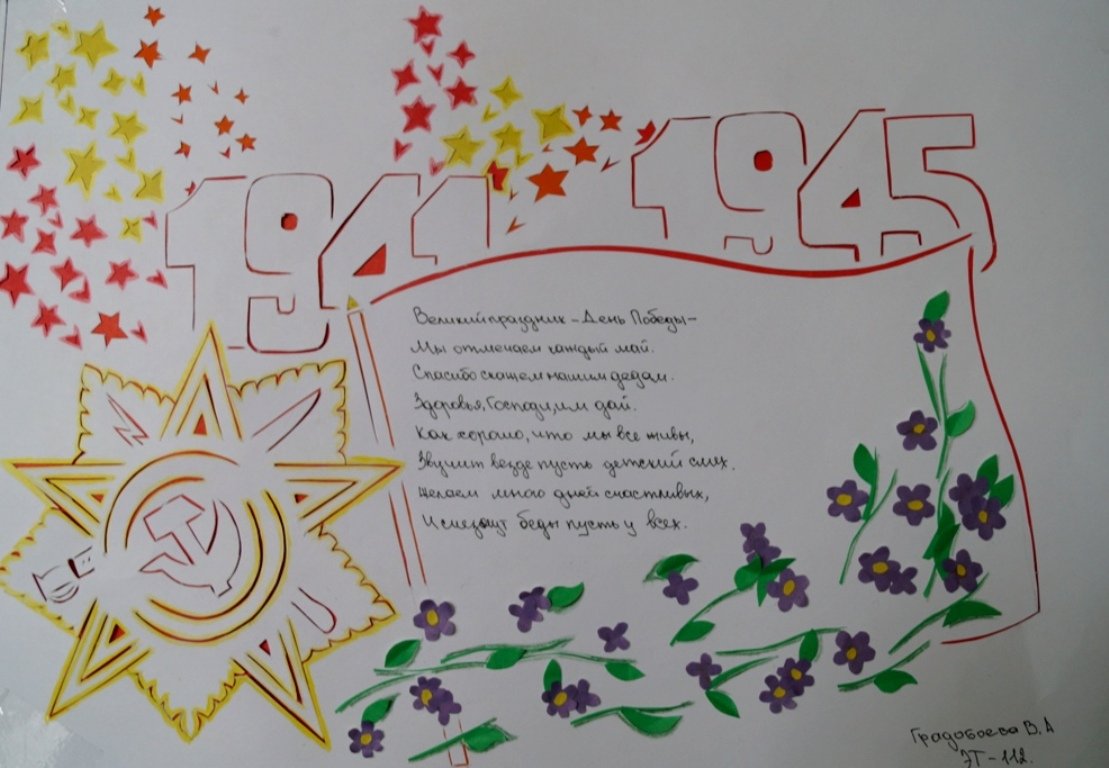 1941 1945
Великий праздник – День Победы –
Мы отмечаем каждый май.
Спасибо скажем нашим дедам.
Здоровья, Господи, им дай.
Как хорошо, что мы все живы,
Звучит везде пусть детский смех.
Желаем много дней счастливых,
Исчезнут беды пусть у всех.
Градобоева В. А
ЭТ-112.